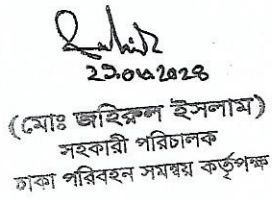 (মোঃ জহিরুল ইসলাম)
সহকারী পরিচালক
ঢাকা পরিবহন সমন্বয় কর্তৃপক্ষ